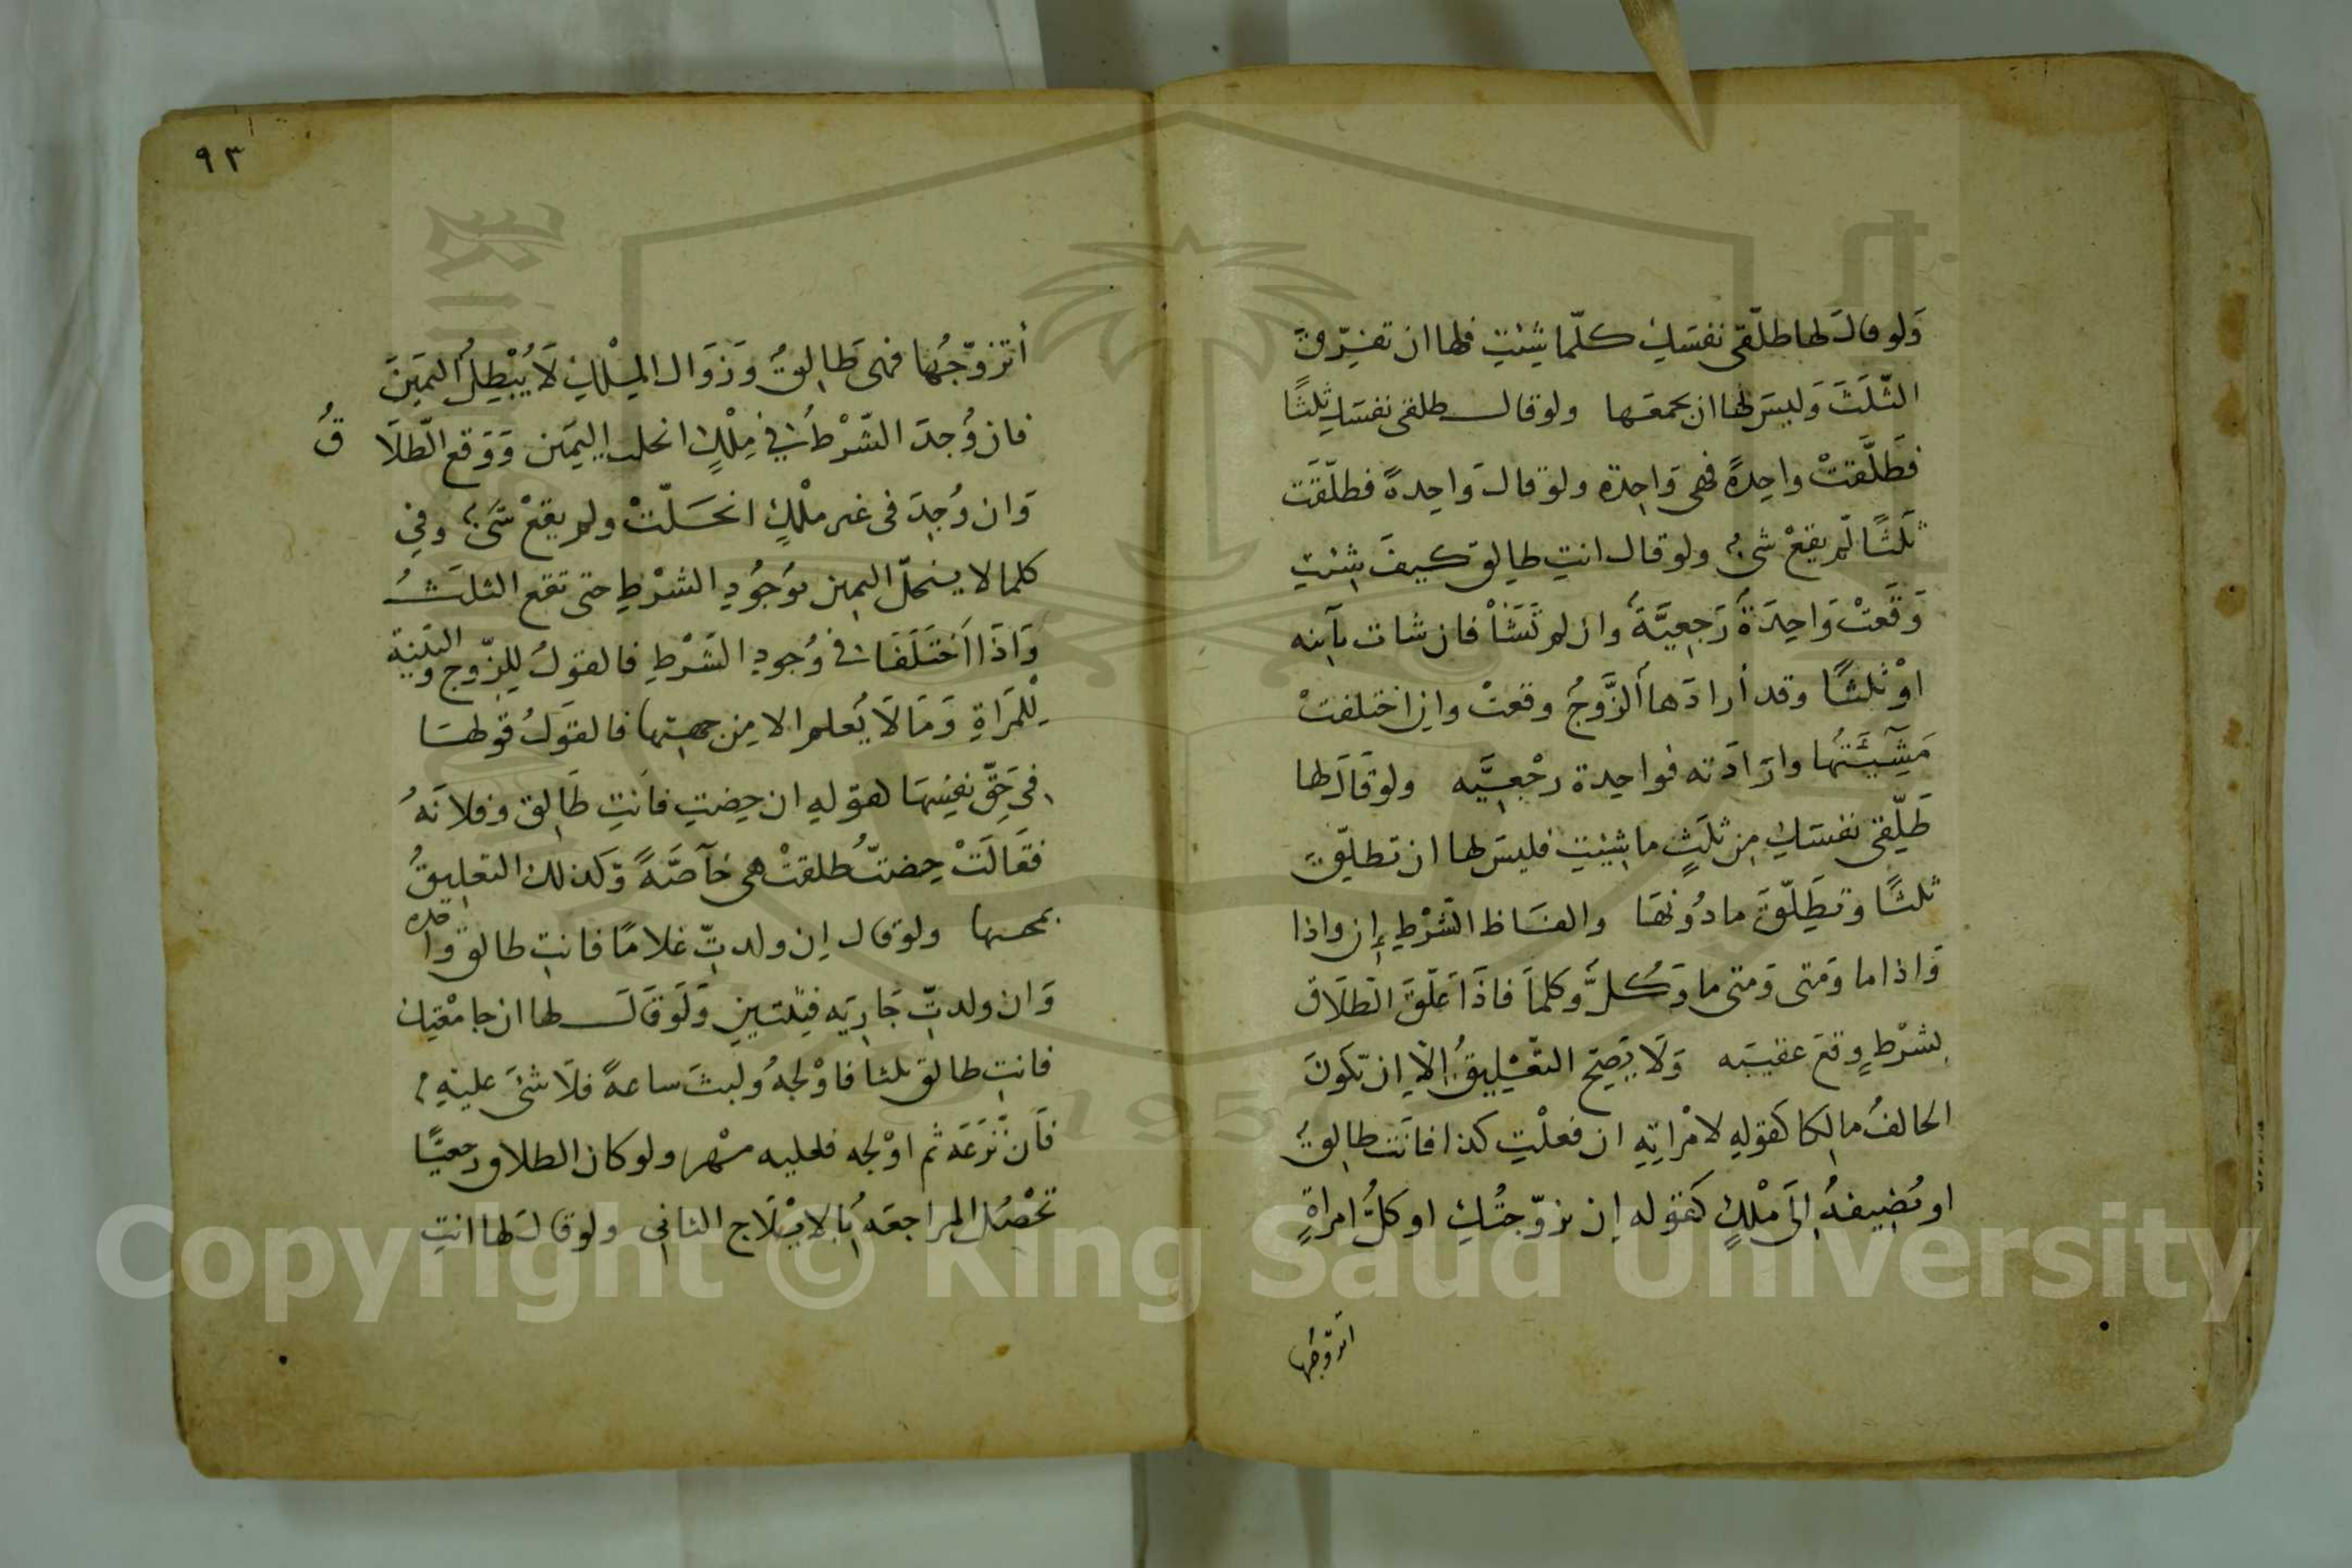 وَلو قالَ لها طلّقى نفسَكِ كلّما شِئتِ فلها ان تفرِّقَ
الثّلَثَ وَليسَ لها ان تجمعَها ولو قال طلقى نفسَكِ ثلثًا
فطَلَّقتْ واحِدةً فهى وَاحِدة ولو قالَ وَاحِدةً فطلّقَت
ثلَثًا لم يقعْ شىءٌ ولو قال انتِ طالِق كيفَ شِئتِ
وَقَعَتْ وَاحِدَةً رَجعِيَّةً وان لم تَشَأْ فان شات بآينه
اوْ ثلثًا وقد أرادَها الزَّوجُ وقعتْ وانِ اختلفتْ
مَشِيَّتُها وارَادَته فواحِدة رجْعِيَّه ولو قَالَ لها
طَلّقِى نفسَكِ مِن ثلَثٍ ما شِئتِ فليسَ لها ان تطلِقَ
ثلثًا وتطَلِّقَ ما دُونَهَا والفَاظ الشَّرْطِ إِن واذا
وَاذا ما وَمتى وَمتى ما وَكُلَّ وكلما فاذَا عَلّقَ الطلَاق
بشرْطٍ وقعَ عقيبَه وَلَا يَصِحّ التَّعْليقُ إلّا ان تكونَ
الحالفُ مالِكا كقولهِ لامْرَاتِهِ ان فعلْتِ كذا فانَتِ طالِقٌ
او يُضِيفهُ الىَ مِلْكٍ كَقوله اِن تزوّجتُكِ او كلُّ امراةٍ
اتزوّجُها
٩٣
أتزوّجُها فهىَ طَالِقٌ وَزَوَال المِلْكِ لَا يُبْطِلُ اليَمينَ
فان وُجدَ الشّرْطُ فى مِلْكٍ انحلت اليمَين وَوَقع الطّلَا قُ
وَان وُجِدَ فى غير ملْكٍ انحَلّتْ ولم يقعْ شَىءٌ وفى
كلما لا ينحلّ اليمين بوُجُودِ الشرْطِ حتى تقع الثلَثُ
وَاذَا اَختَلَفَا فى وُجودِ الشَرْطِ فالقولُ لِلزّوج والبَيّنة
لِلمَراةِ وَمَا لَا يُعلم الا مِن جهتِها فالقَولُ قولهَا
فى حَقّ نفسِهَا كقولهِ ان حِضتِ فانتِ طَالِق وفلانَهُ
فقَالَتْ حِضتُ طلقتْ هى خاصَّةً وَكذلك التعليقُ
بمحبتها ولو قال اِن ولدتِّ غلامًا فانتِ طالق واحدة
وَان ولدتِّ جَاريَه فثِنتين وَلَوقَالَ لها ان جامعْتكِ
فانتِ طالق ثلثا فاوْلجهُ ولبثَ ساعةً فلَا شىَ عليْهِ
فاَن نزَعَهُ ثم اوْلجه فعليه مهْر ولو كان الطلاق رجعيًّا
تحْصُل المراجعَه بُالايْلَاج الثانى ولو قالَ لها انتِ
Copyright © King Saud University
1957